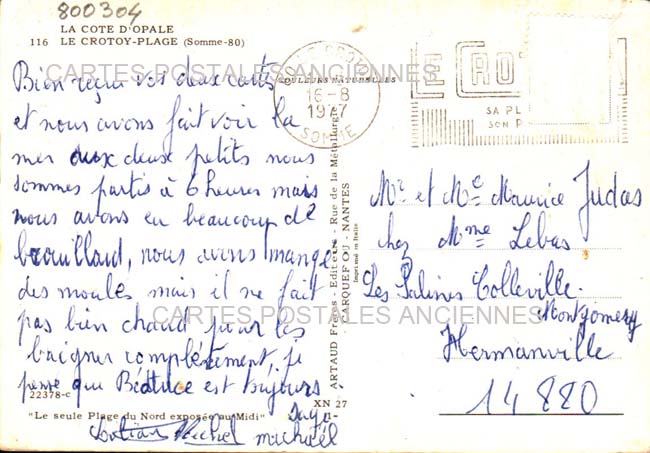 800304
LA COTE D'OPALE
116 LE CROTOY-PLAGE (Somme-80)
Bien reçu vos deux cartes
et nous avons fait voir la
mer aux deux petits nous
sommes partis à 6 heures mais
nous avons eu beaucoup de
brouillard, nous avons mangé
des moules mais il ne fait
pas bien chaud pour les
baigner complètement, je
pense que Béatrice est toujours
sage
Michel michaël
22378-c
"Le seule Plage du Nord exposée au Midi"
CARTES POSTALES ANCIENNES
CARTES POSTALES ANCIENNES
COULEURS NATURELLES
16-8
SOMME
SA PL
SON P
ARTAUD Frères - Editeurs - Rue de la Métallurgie
CARQUEFOU - NANTES
Imprimé en Italie
XN 27
Mr et Me Maurice Judas
chez Mme Lebas
Les Salines Colleville
Montgomery
Hermanville
14 880